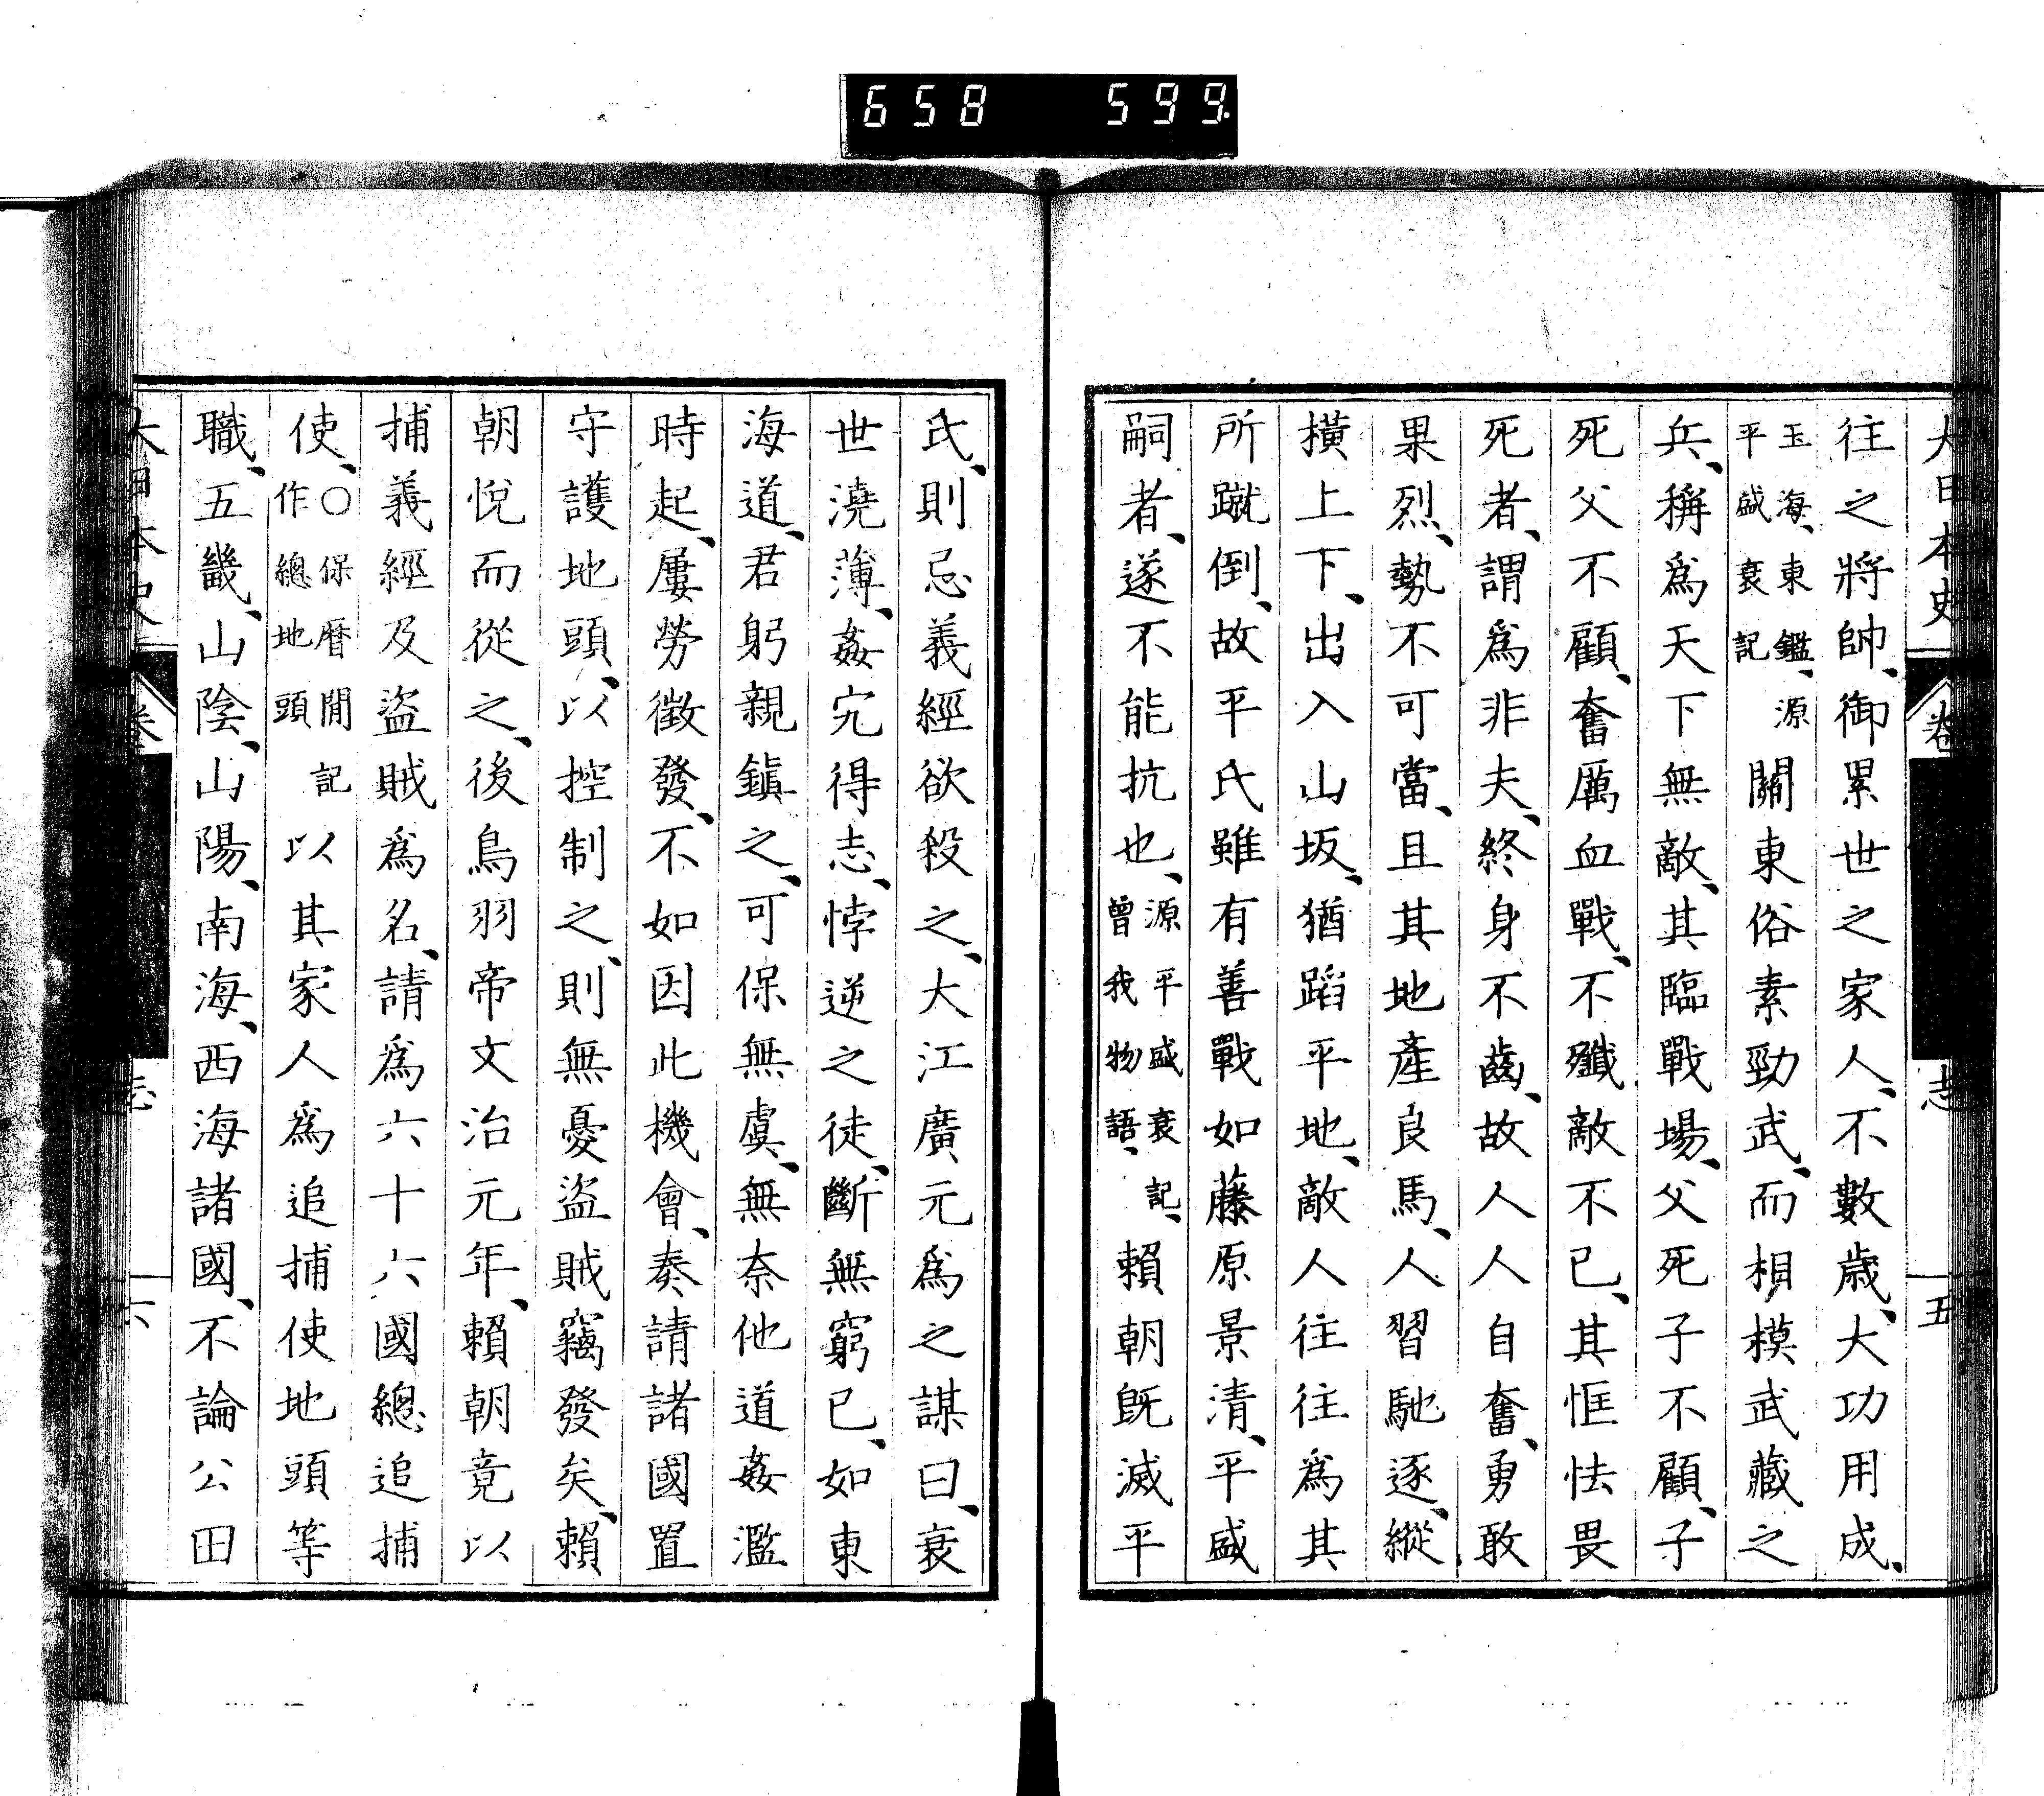 658 599.
大日本史 卷 志 五
往之將帥、御累世之家人、不數歲、大功用成、
玉海、東鑑、源平盛衰記 關東俗素勁武、而相模武藏之
兵、稱爲天下無敵、其臨戰場、父死子不顧、子
死父不顧、奮厲血戰、不殲敵不已、其恇怯畏
死者、謂爲非夫、終身不齒、故人人自奮、勇敢
果烈、勢不可當、且其地產良馬、人習馳逐、縱
橫上下、出入山坂、猶蹈平地、敵人往往爲其
所蹴倒、故平氏雖有善戰如藤原景清、平盛
嗣者、遂不能抗也、源平盛衰記、曾我物語、賴朝既滅平
氏、則忌義經欲殺之、大江廣元爲之謀曰、衰
世澆薄、姦宄得志、悖逆之徒、斷無窮已、如東
海道、君躬親鎭之、可保無虞、無奈他道姦濫
時起、屢勞徵發、不如因此機會、奏請諸國置
守護地頭、以控制之、則無憂盜賊竊發矣、賴
朝悅而從之、後鳥羽帝文治元年、賴朝竟以
捕義經及盜賊爲名、請爲六十六國總追捕
使、○保曆間記作總地頭 以其家人爲追捕使地頭等
職、五畿、山陰、山陽、南海、西海諸國、不論公田
大日本史 卷 志 六